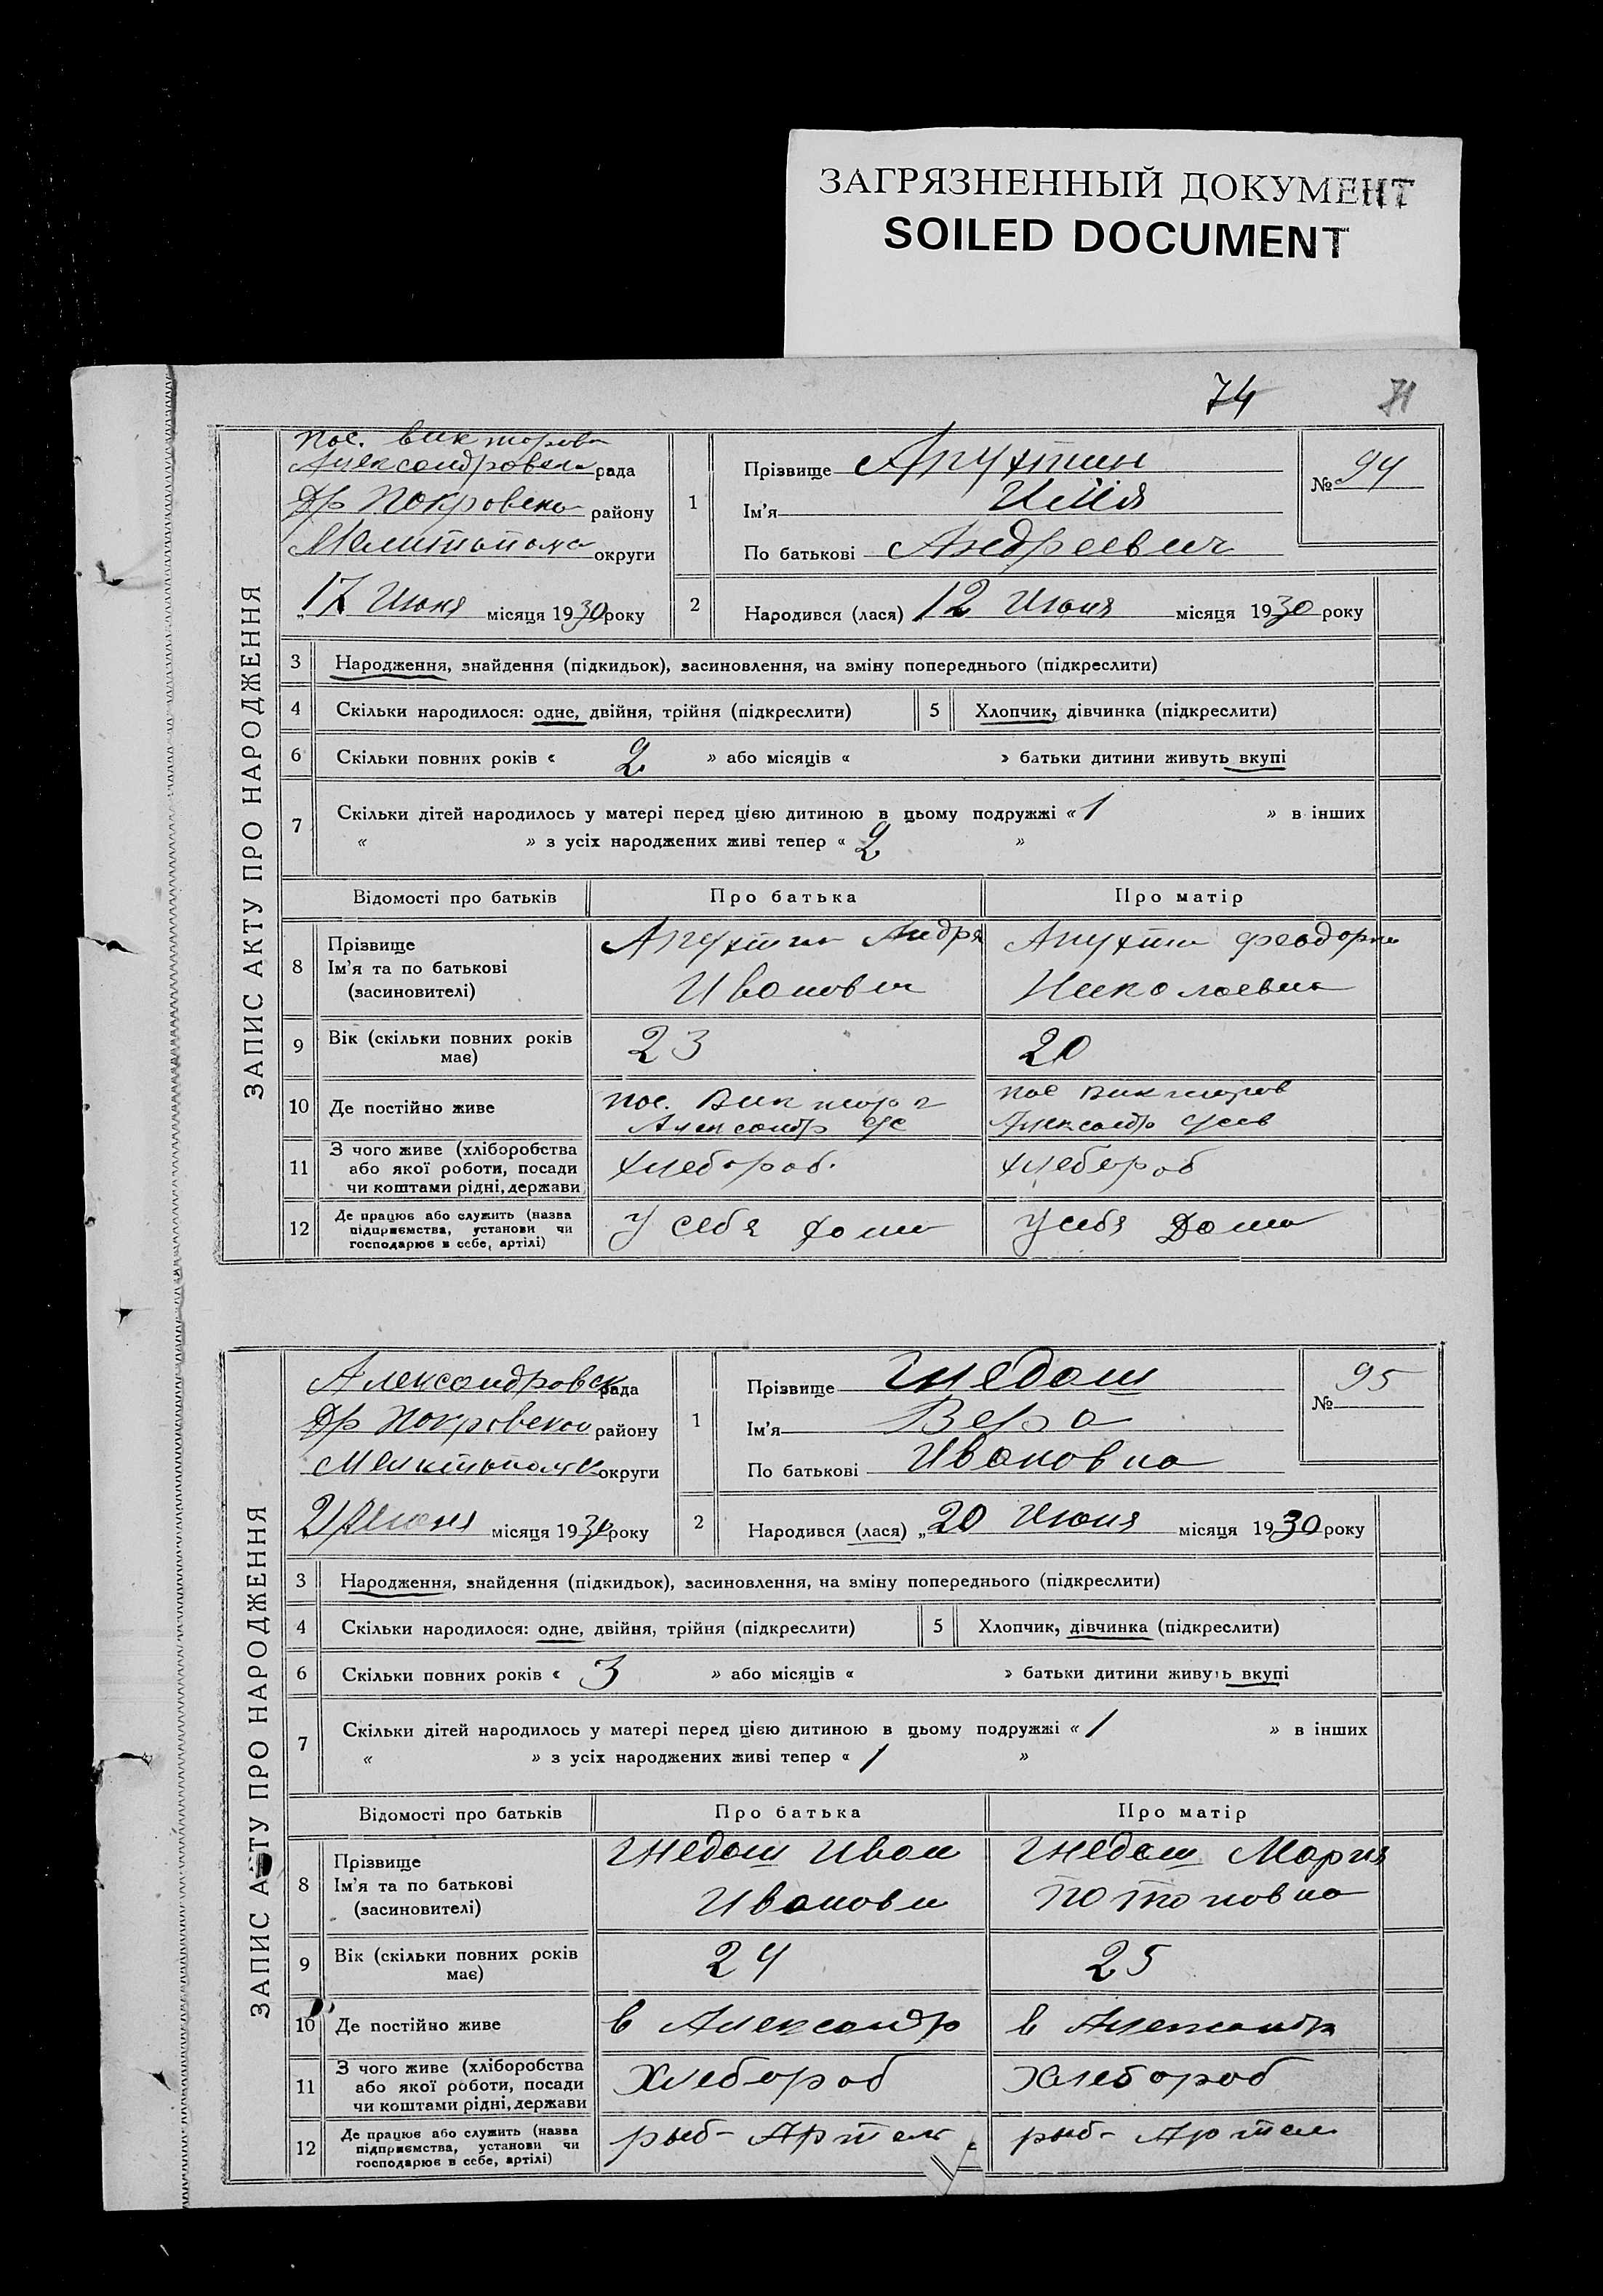 ЗАГРЯЗНЕННЫЙ ДОКУМЕНТ
SOILED DOCUMENT
74
71
ЗАПИС АКТУ ПРО НАРОДЖЕННЯ
пос. Викторов
Александровск рада
Др Покровско району
Мелитопол округи
17 Июня місяця 1930 року
1
Прізвище Апухтин
Ім'я Илія
По батькові Андреевич
№ 94
2
Народився (лася) 12 Июня місяця 1930 року
3 Народження, знайдення (підкидьок), засиновлення, на зміну попереднього (підкреслити)
4 Скільки народилося: одне, двійня, трійня (підкреслити) 5 Хлопчик, дівчинка (підкреслити)
6 Скільки повних років « 2 » або місяців « » батьки дитини живуть вкупі
7 Скільки дітей народилось у матері перед цією дитиною в цьому подружжі « 1 » в інших
« » з усіх народжених живі тепер « 2 »
Відомості про батьків Про батька Про матір
8 Прізвище
Ім'я та по батькові
(засиновителі)
Апухтин Андря
Иванович
Апухтин Феодори
Николаевна
9 Вік (скільки повних років
має) 23 20
10 Де постійно живе
пос. Виктор
Александр
пос Викторов
Александр
11 З чого живе (хліборобства
або якої роботи, посади
чи коштами рідні, держави
хлебороб. хлебороб
12 Де працює або служить (назва
підприємства, установи чи
господарює в себе, артілі)
У себя дома У себя Дома
ЗАПИС АКТУ ПРО НАРОДЖЕННЯ
Александровск рада
Др Покровско району
Мелитополь округи
21 Июня місяця 1930 року
1
Прізвище Гнедаш
Ім'я Вера
По батькові Ивановна
№ 95
2
Народився (лася) „ 20 Июня місяця 1930 року
3 Народження, знайдення (підкидьок), засиновлення, на зміну попереднього (підкреслити)
4 Скільки народилося: одне, двійня, трійня (підкреслити) 5 Хлопчик, дівчинка (підкреслити)
6 Скільки повних років « 3 » або місяців « » батьки дитини живуть вкупі
7 Скільки дітей народилось у матері перед цією дитиною в цьому подружжі « 1 » в інших
« » з усіх народжених живі тепер « 1 »
Відомості про батьків Про батька Про матір
8 Прізвище
Ім'я та по батькові
(засиновителі)
Гнедаш Иван
Иванови
Гнедаш Мария
Потаповна
9 Вік (скільки повних років
має) 24 25
10 Де постійно живе в Александр в Александр
11 З чого живе (хліборобства
або якої роботи, посади
чи коштами рідні, держави
Хлебороб Хлебороб
12 Де працює або служить (назва
підприємства, установи чи
господарює в себе, артілі)
рыб- Артел рыб- Артел